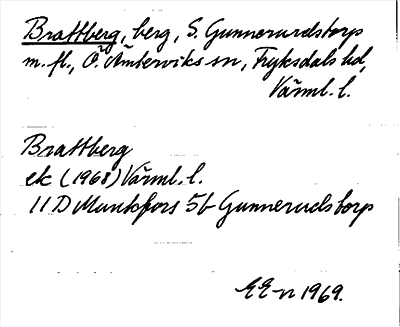 Brattberg, berg, S. Gunnerudstorp
m. fl., Ö. Ämterviks sn, Fryksdals hd,
Värml. l.
Brattberg
ek (1968) Värml. l.
11 D Munkfors 5b Gunnerudstorp
EE-n 1969.